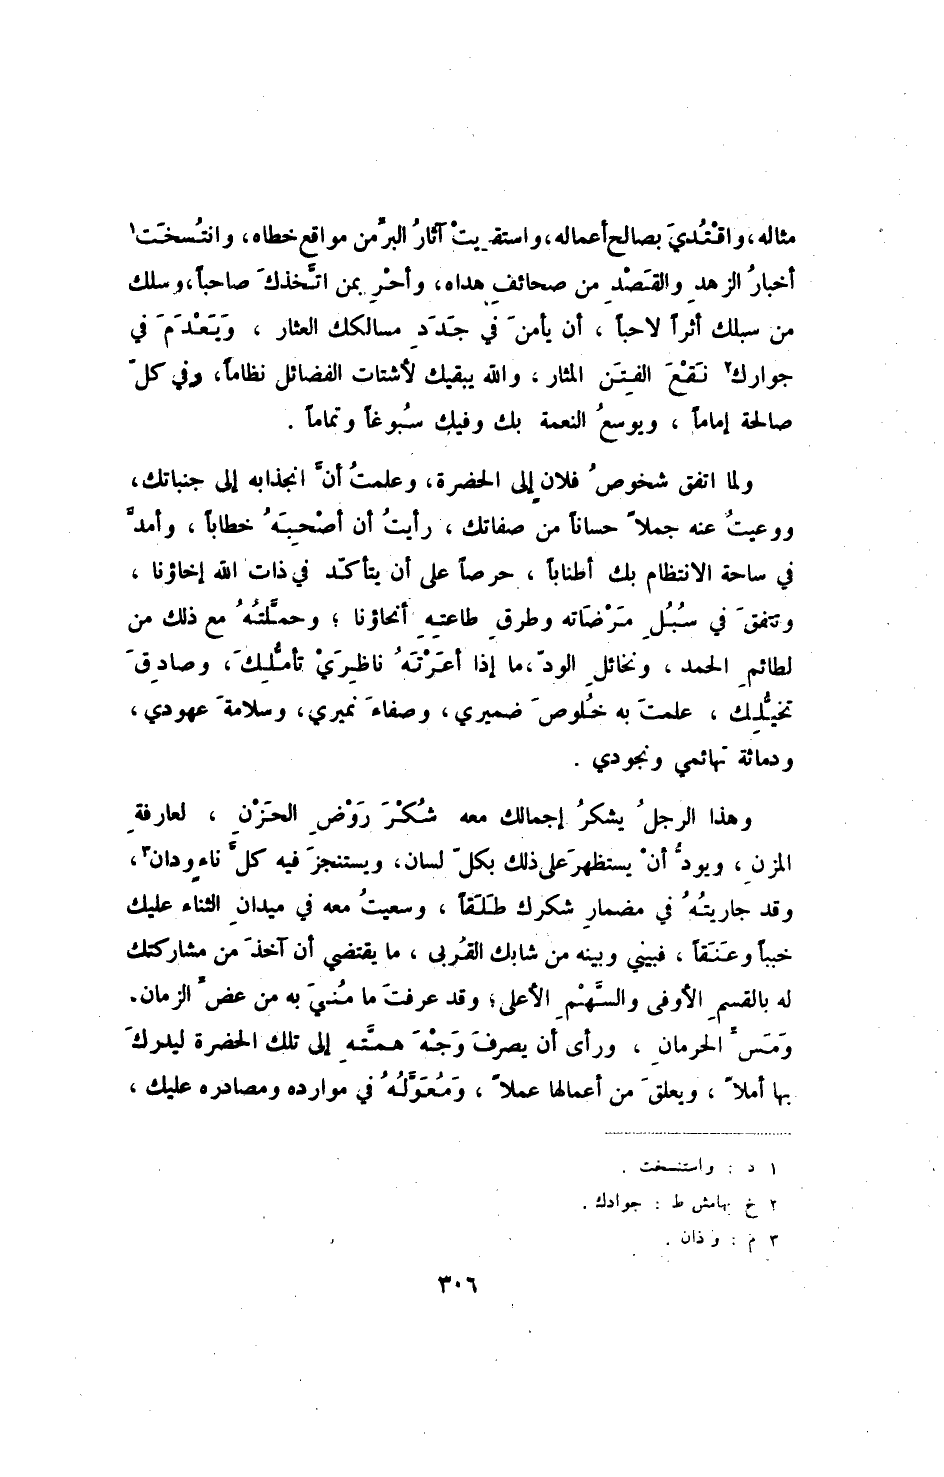 مثاله، واقْتُديَ بصالح أعماله، واستقريتْ آثارُ البرّ من مواقع خطاه، وانتُسختَ١
أخبارُ الزهدِ والقَصْدِ من صحائفِ هداه، وأحْرِ بمن اتَّخذكَ صاحباً، وسلك
من سبلك أثراً لاحباً ، أن يأمنَ في جَدَدِ مسالكك العثار ، وَيَعْدَمَ في
جوارك٢ نَقْعَ الفِتَنِ المثار ، والله يبقيك لأشتات الفضائل نظاماً، وفي كلّ
صالحة إماماً ، ويوسعُ النعمة بك وفيك سُبوغاً وتماماً .
ولما اتفق شخوصُ فلانٍ إلى الحضرة، وعلمتُ أنَّ انجذابه إلى جنباتك،
ووعيتُ عنه جملاً حساناً من صفاتك ، رأيتُ أن أصْحِبَهُ خطاباً ، وأمدَّ
في ساحة الانتظام بك أطناباً ، حرصاً على أن يتأكّد في ذات الله إخاؤنا ،
وتتفقَ في سُبُلِ مَرْضَاته وطرقِ طاعتِهِ أنحاؤنا ؛ وحمَّلتُهُ مع ذلك من
لطائمِ الحمد ، ونخائلِ الودّ، ما إذا أعَرْتَهُ ناظِرَيْ تأمُّلِكَ، وصادِقَ
تخيُّلِك ، علمتَ به خُلوصَ ضميري، وصفاءَ نميري، وسلامةَ عهودي،
ودماثة تهائمي ونجودي .
وهذا الرجلُ يشكرُ إجمالك معه شُكْرَ رَوْضِ الحَزْنِ ، لعارفةِ
المزنِ ، ويودُّ أنْ يستظهرَ على ذلك بكلّ لسان، ويستنجزَ فيه كلَّ ناءٍ ودان٣،
وقد جاريتُهُ في مضمارِ شكرك طَلَقاً ، وسعيتُ معه في ميدانِ الثناء عليك
خبباً وعَنَقاً ، فبيني وبينه من شابك القُربى ، ما يقتضي أن آخذَ من مشاركتك
له بالقسمِ الأوفى والسَّهْمِ الأعلى؛ وقد عرفتَ ما مُنيَ به من عضّ الزمان.
وَمَسِّ الحرمانِ ، ورأى أن يصرفَ وَجْهَ همَّتهِ إلى تلك الحضرة ليدركَ
بها أملاً ، ويعلقَ من أعمالها عملاً ، وَمُعَوَّلُهُ في موارده ومصادره عليك ،
١ د : واستنسخت .
٢ خ بهامش ط : جوادك .
٣ م : وذان .
٣٠٦